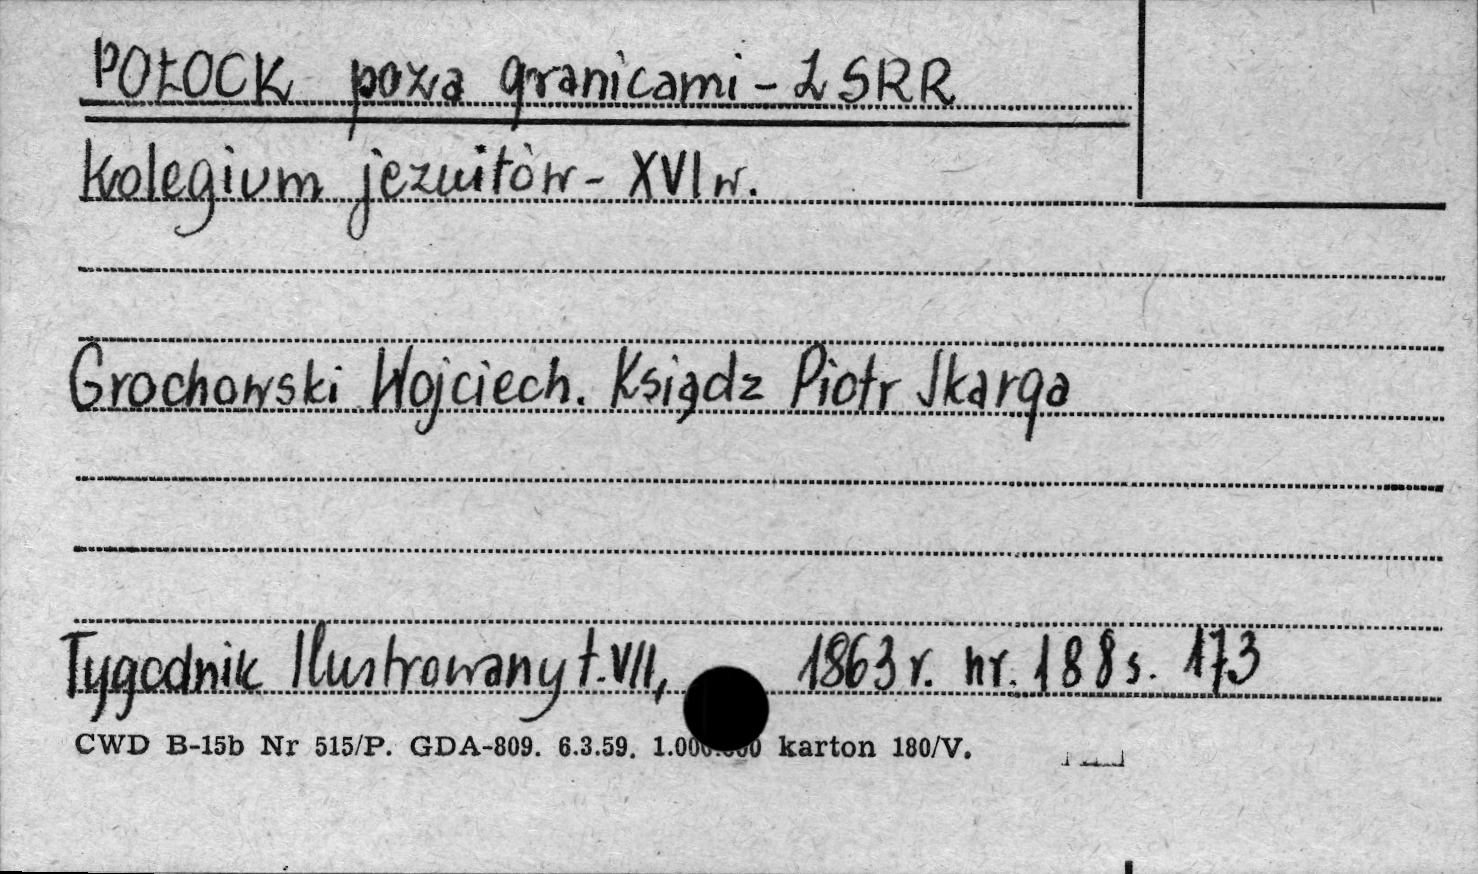 POŁOCK poza granicami - ZSRR
Kolegium jezuitów - XVI w.
Grochowski Wojciech. Ksiądz Piotr Skarga
Tygodnik Ilustrowany t. VII, 1863 r. nr. 188 s. 173
CWD B-15b Nr 515/P. GDA-809. 6.3.59. 1.000.000 karton 180/V.